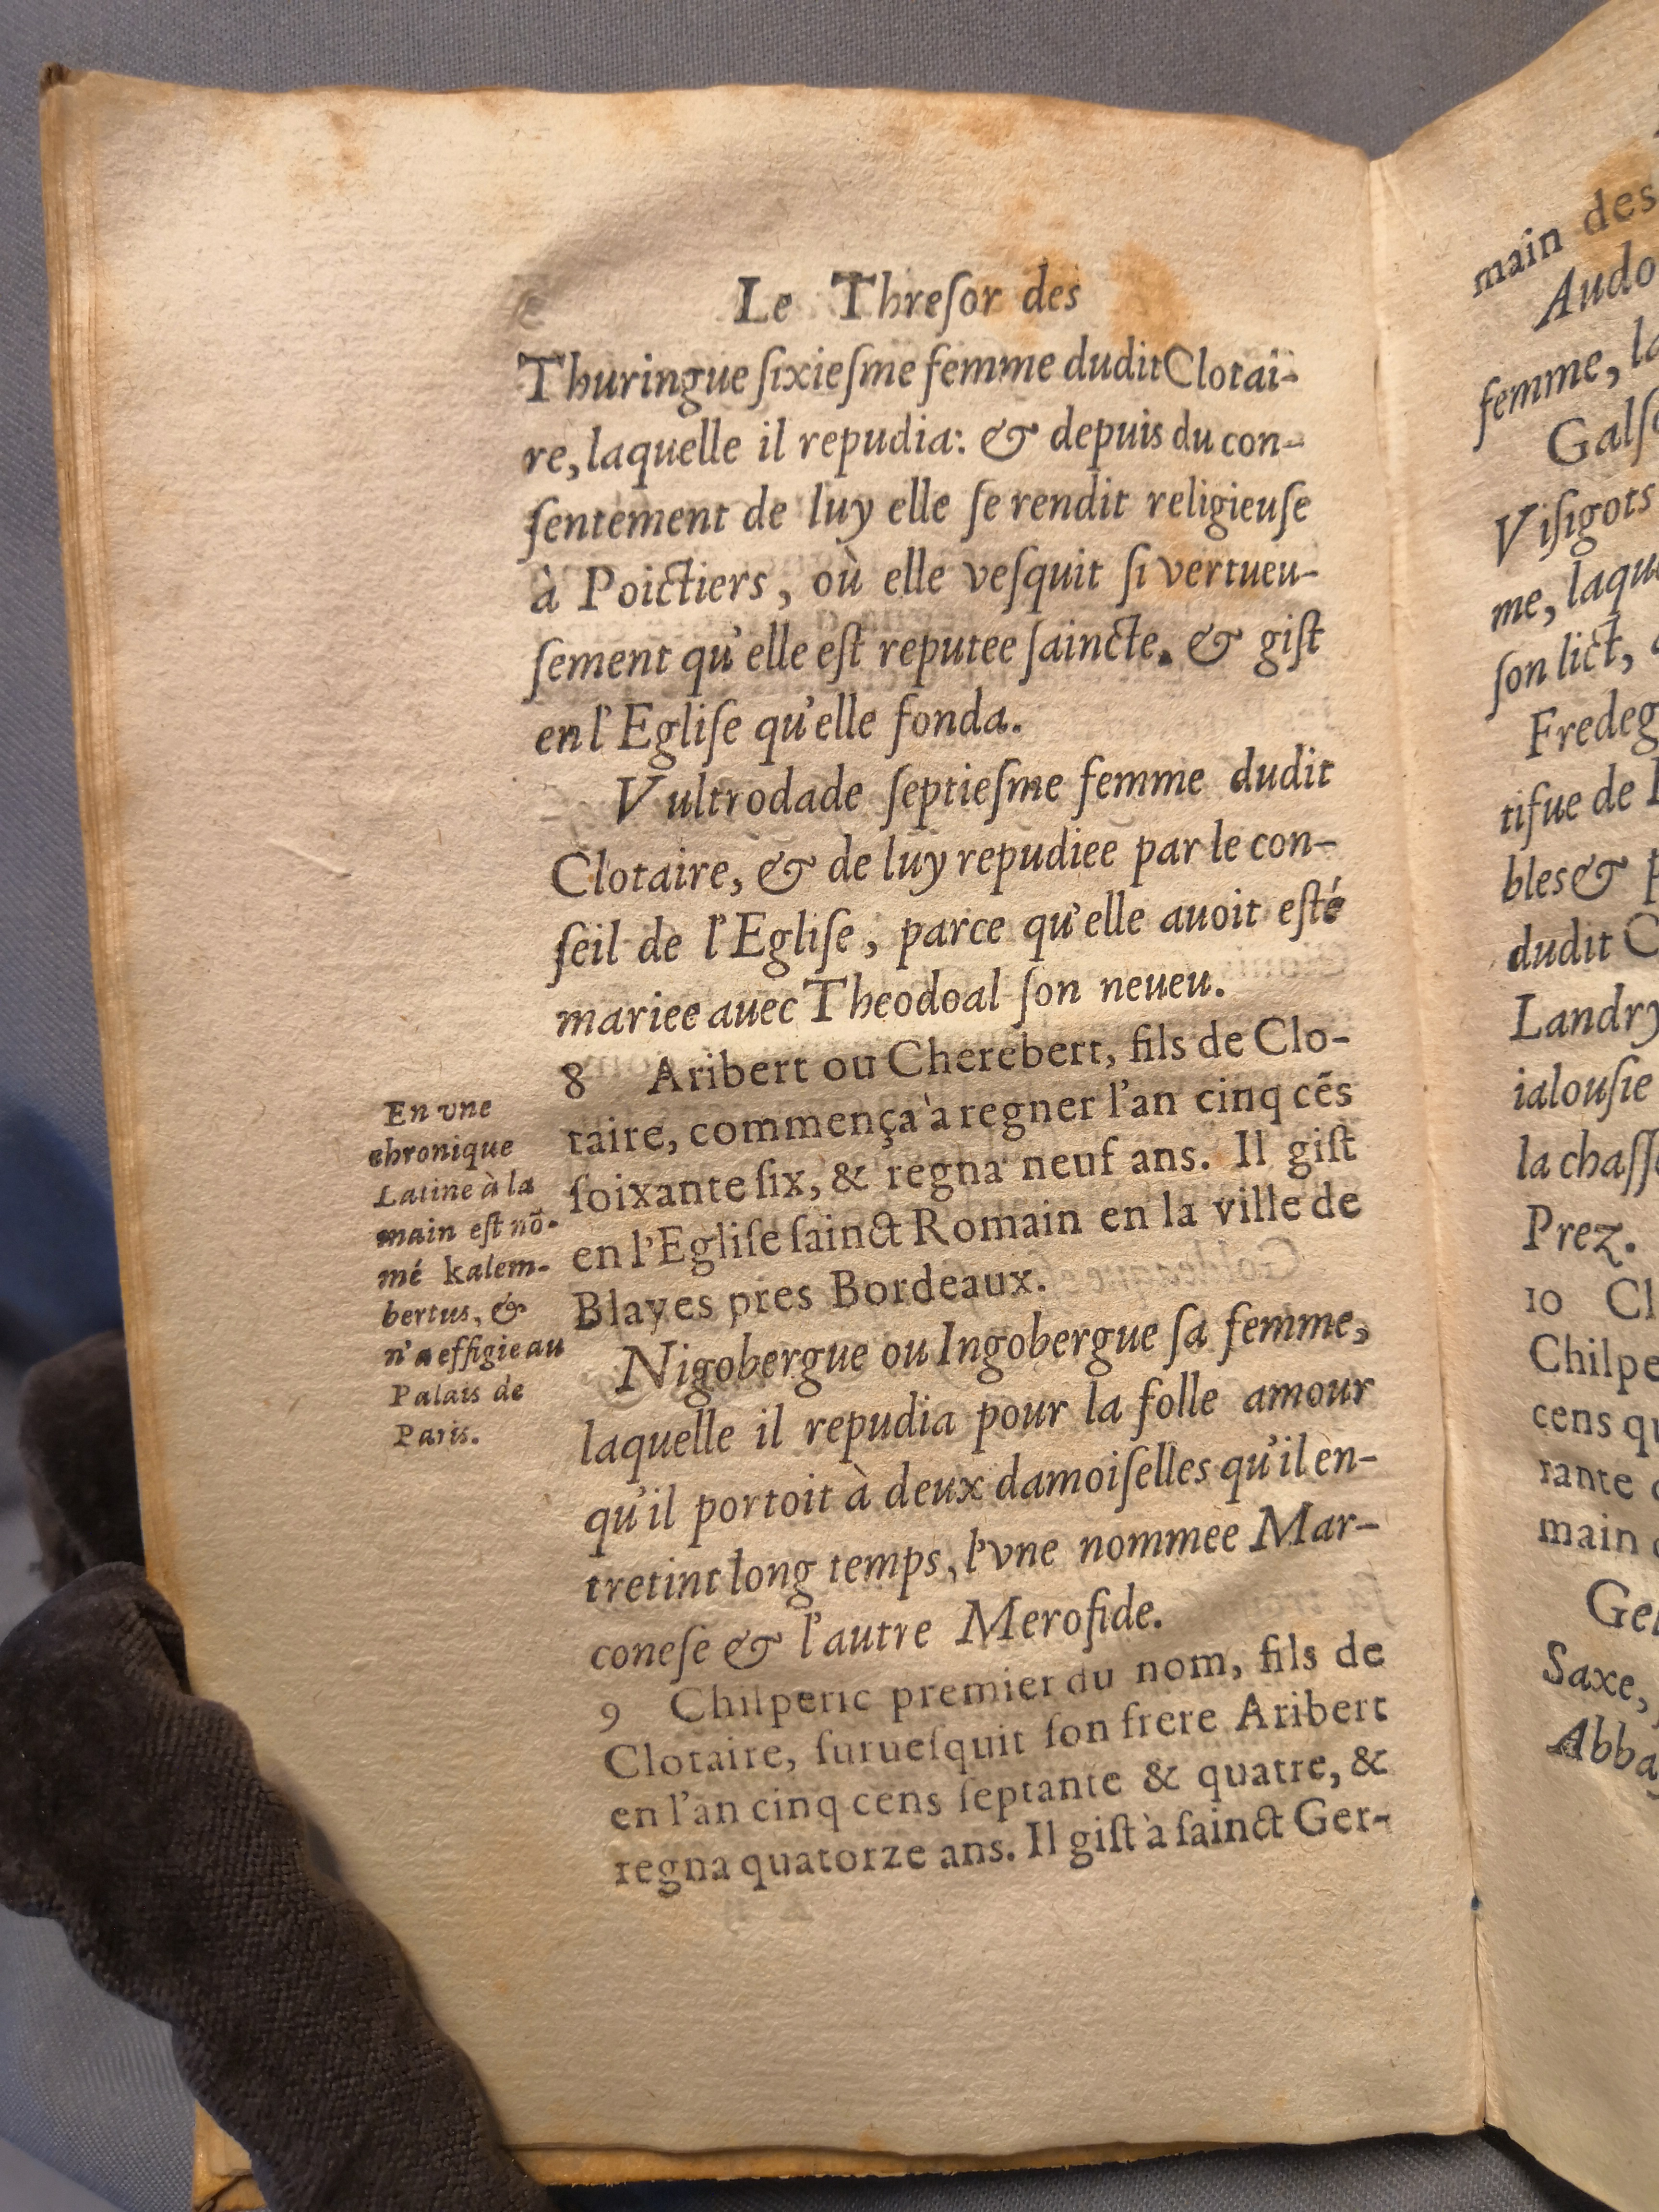 Le Threſor des
Thuringue ſixieſme femme dudit Clotai-
re, laquelle il repudia: & depuis du con-
ſentement de luy elle ſe rendit religieuſe
à Poictiers, où elle veſquit ſi vertueu-
ſement qu'elle eſt reputee ſaincte. & giſt
en l'Egliſe qu'elle fonda.
Vultrodade ſeptieſme femme dudit
Clotaire, & de luy repudiee par le con-
ſeil de l'Egliſe, parce qu'elle auoit eſté
mariee auec Theodoal ſon neueu.
8 Aribert ou Cherebert, fils de Clo-
taire, commença à regner l'an cinq cẽs
ſoixante ſix, & regna neuf ans. Il giſt
en l'Egliſe ſainct Romain en la ville de
Blayes pres Bordeaux.
En vne
chronique
Latine à la
main eſt nõ-
mé kalem-
bertus, &
n'a effigie au
Palais de
Paris.
Nigobergue ou Ingobergue ſa femme,
laquelle il repudia pour la folle amour
qu'il portoit à deux damoiſelles qu'il en-
tretint long temps, l'vne nommee Mar-
coneſe & l'autre Merofide.
9 Chilperic premier du nom, fils de
Clotaire, ſurueſquit ſon frere Aribert
en l'an cinq cens ſeptante & quatre, &
regna quatorze ans. Il giſt à ſainct Ger-
main des
Audo
femme, la
Galſ
Viſigots
me, laqu
ſon lict,
Fredeg
tifue de
bles &
dudit C
Landry
ialouſie
la chaſſ
Prez.
10 Cl
Chilpe
cens qu
rante
main
Ge
Saxe,
Abba